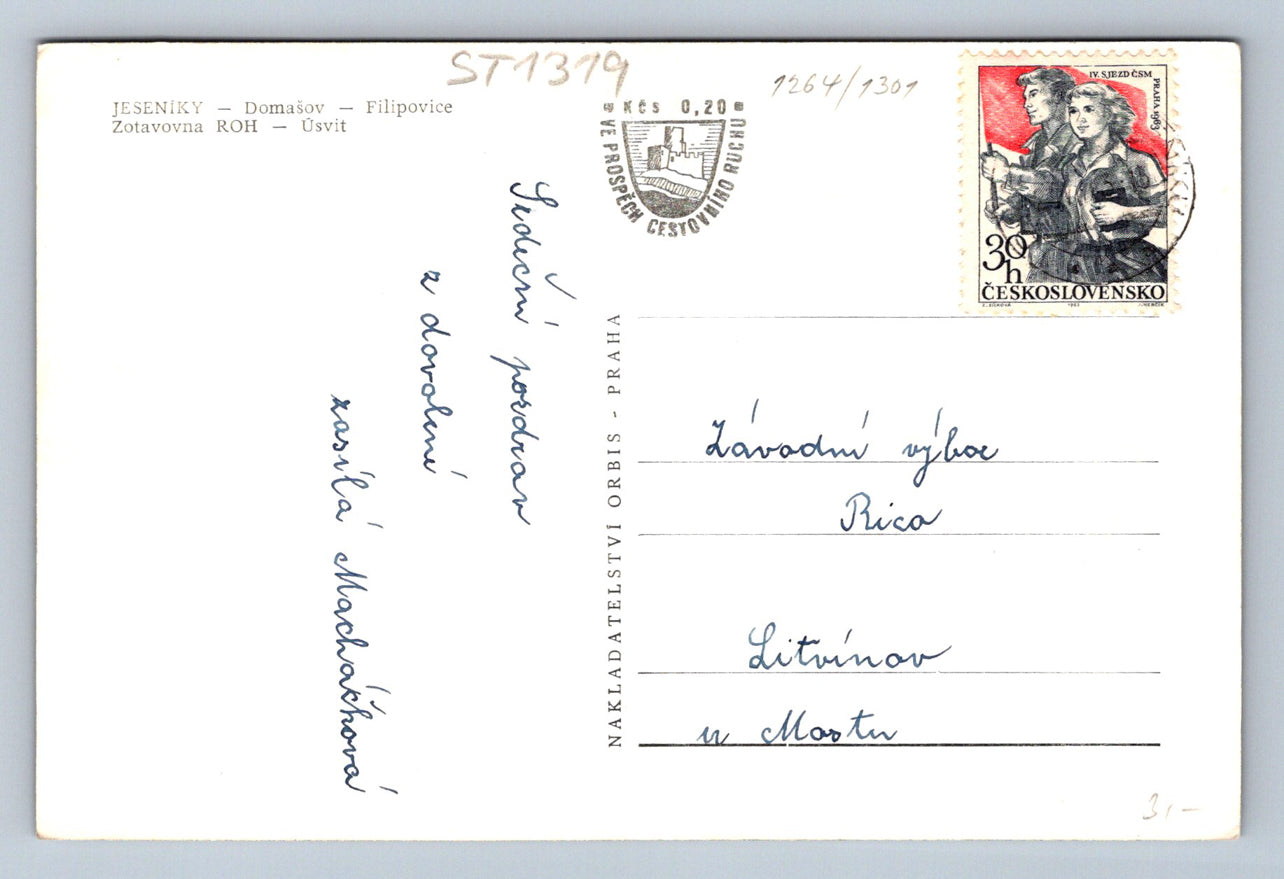 ST1319
1264/1301
JESENÍKY — Domašov — Filipovice
Zotavovna ROH — Úsvit
Kčs 0,20
VE PROSPĚCH CESTOVNÍHO RUCHU
IV. SJEZD ČSM
PRAHA 1963
30 h
ČESKOSLOVENSKO
Srdečný pozdrav
z dovolené
zasílá Macháčková
NAKLADATELSTVÍ ORBIS - PRAHA
Závodní výbor
Rico
Litvínov
u Mostu
3,-